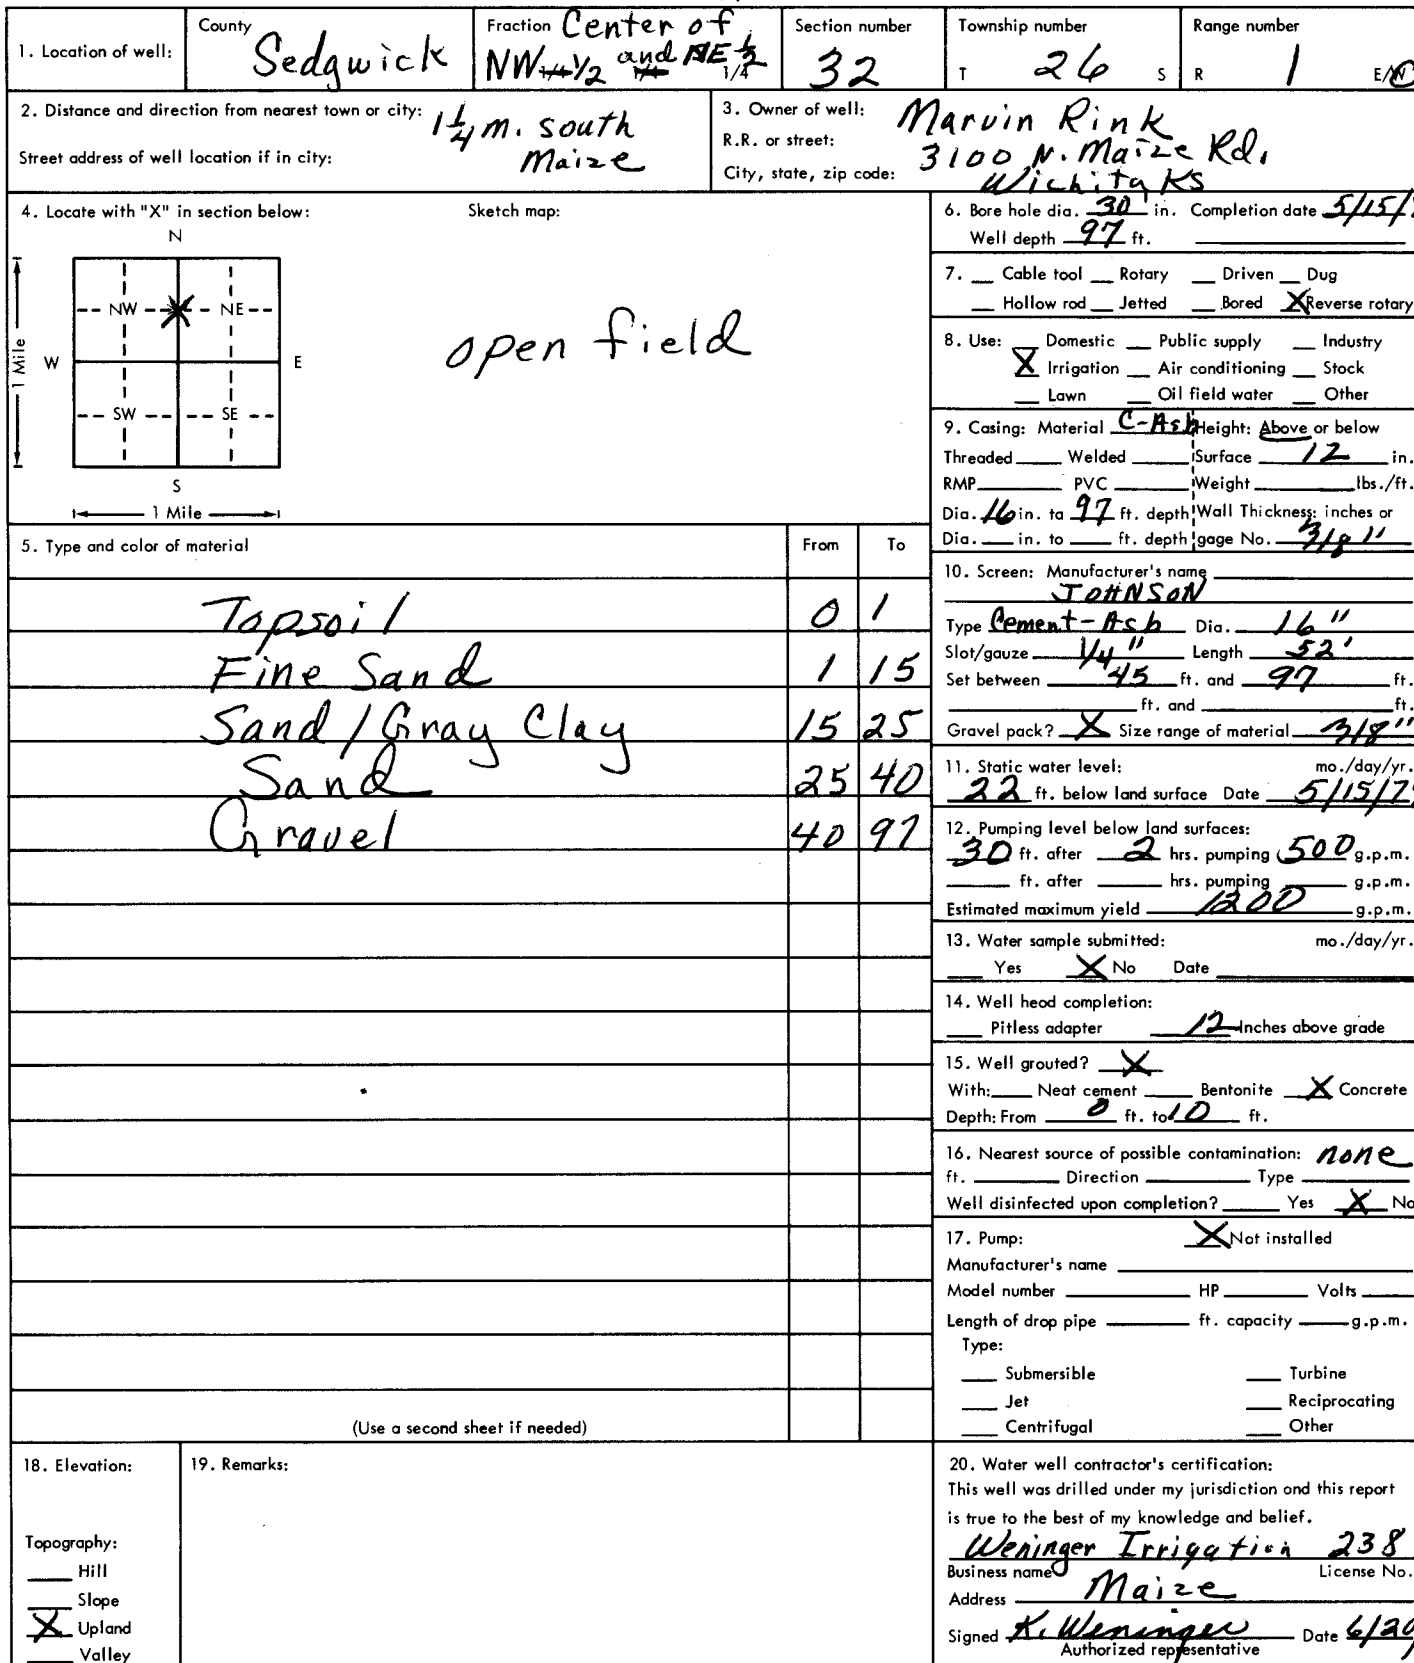 1. Location of well:
County
Sedgwick
Fraction Center of
NW 1/4 1/2 and 1/4 NE 1/2 1/4
Section number
32
Township number
T 26 S
Range number
R 1 E/W
2. Distance and direction from nearest town or city: 1 1/4 m. south
Street address of well location if in city: Maize
3. Owner of well: Marvin Rink
R.R. or street: 3100 N. Maize Rd.
City, state, zip code: Wichita KS
4. Locate with "X" in section below:
Sketch map:
N
NW X NE
W E
SW SE
S
1 Mile
1 Mile
open field
5. Type and color of material From To
Topsoil 0 1
Fine Sand 1 15
Sand / Gray Clay 15 25
Sand 25 40
Gravel 40 97
(Use a second sheet if needed)
6. Bore hole dia. 30 in. Completion date 5/15/
Well depth 97 ft.
7. __ Cable tool __ Rotary __ Driven __ Dug
__ Hollow rod __ Jetted __ Bored X Reverse rotary
8. Use: __ Domestic __ Public supply __ Industry
X Irrigation __ Air conditioning __ Stock
__ Lawn __ Oil field water __ Other
9. Casing: Material C-Asb Height: Above or below
Threaded __ Welded __ Surface 12 in.
RMP __ PVC __ Weight __ lbs./ft.
Dia. 16 in. to 97 ft. depth Wall Thickness: inches or
Dia. __ in. to __ ft. depth gage No. 3/8"
10. Screen: Manufacturer's name
JOHNSON
Type Cement-Asb Dia. 16"
Slot/gauze 1/4" Length 52'
Set between 45 ft. and 97 ft.
__ ft. and __ ft.
Gravel pack? X Size range of material 3/8"
11. Static water level: mo./day/yr.
22 ft. below land surface Date 5/15/7
12. Pumping level below land surfaces:
30 ft. after 2 hrs. pumping 500 g.p.m.
__ ft. after __ hrs. pumping __ g.p.m.
Estimated maximum yield 1200 g.p.m.
13. Water sample submitted: mo./day/yr.
__ Yes X No Date __
14. Well head completion:
__ Pitless adapter 12 Inches above grade
15. Well grouted? X
With: __ Neat cement __ Bentonite X Concrete
Depth: From 0 ft. to 10 ft.
16. Nearest source of possible contamination: none
ft. __ Direction __ Type __
Well disinfected upon completion? __ Yes X No
17. Pump: X Not installed
Manufacturer's name __
Model number __ HP __ Volts __
Length of drop pipe __ ft. capacity __ g.p.m.
Type:
__ Submersible __ Turbine
__ Jet __ Reciprocating
__ Centrifugal __ Other
18. Elevation:
Topography:
__ Hill
__ Slope
X Upland
__ Valley
19. Remarks:
20. Water well contractor's certification:
This well was drilled under my jurisdiction and this report
is true to the best of my knowledge and belief.
Weninger Irrigation 238
Business name License No.
Address Maize
Signed K. Weninger Date 6/20/
Authorized representative